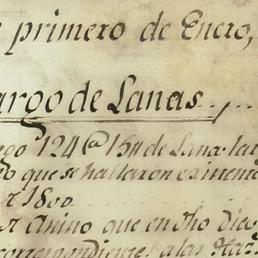 primero de Enero,
argo de Lanas.,
go 124 @ 15 lt de Lana lar
do que se hallaron existent
r 1800
r Anino que en dho dia
correspondientes a las Haz